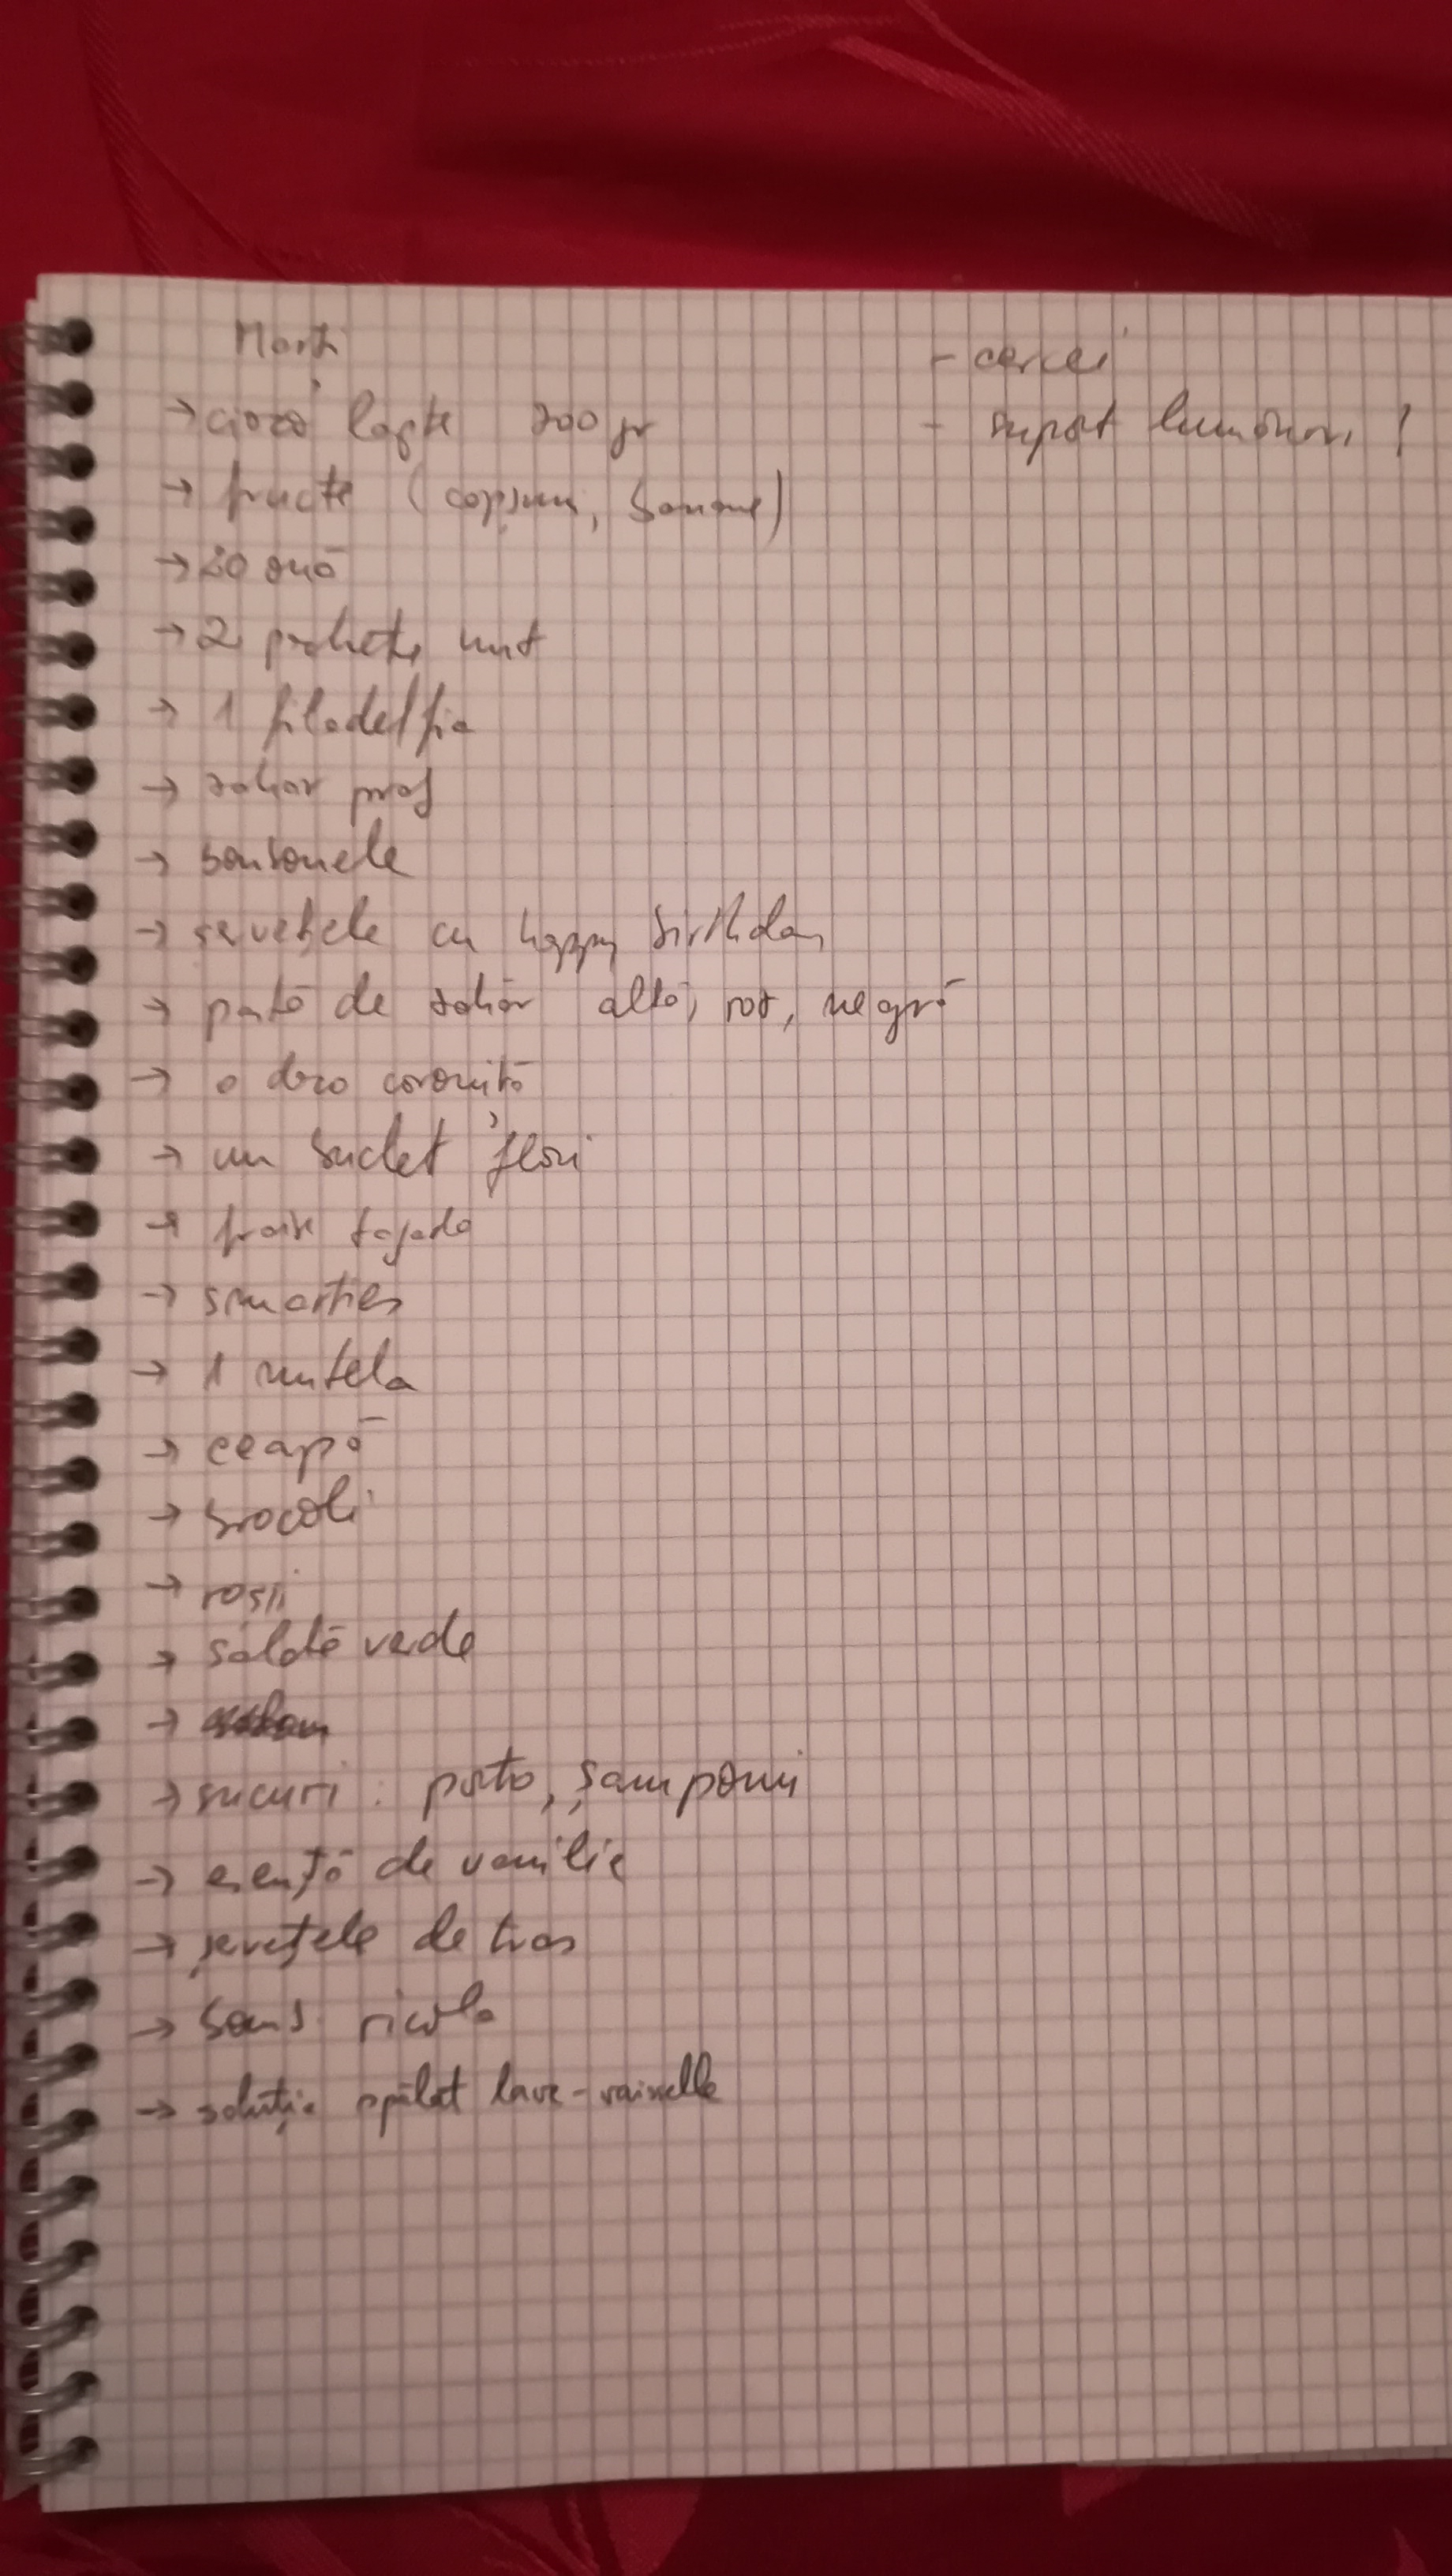 Marți
- cercei
→ ciocó lapte 200 gr
- suport lumânări !
→ fructe (căpșuni, banane)
→ 20 ouă
→ 2 pachete unt
→ 1 filadelfia
→ zahăr praf
→ bombonele
→ șervețele cu happy birthday
→ pastă de zahăr albă, roz, neagră
→ o deco coroniță
→ un buchet flori
→ fraise tagada
→ smarties
→ 1 nutela
→ ceapă
→ brocoli
→ roșii
→ salată verde
→ sucuri : porto, șampanii
→ esență de vanilie
→ șervețele de tras
→ bomb. ricola
→ soluție spălat lave-vaisselle